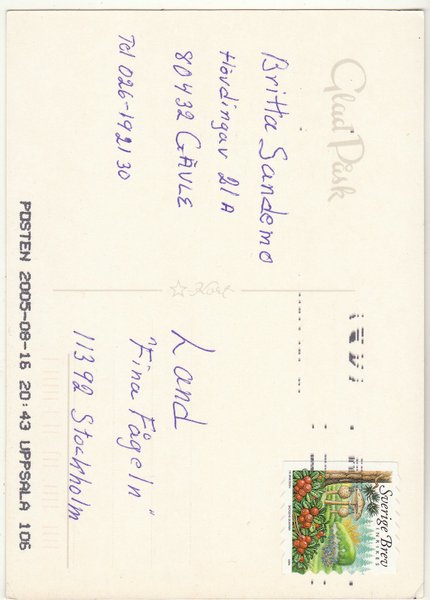 Glad Påsk
Britta Sandemo
Hövdingav 21 A
80432 GÄVLE
Tel 026-192130
Kort
Land
"Fina Fågeln"
11392 Stockholm
Sverige Brev
INRIKES
POSTEN 2005-08-16 20:43 UPPSALA 106